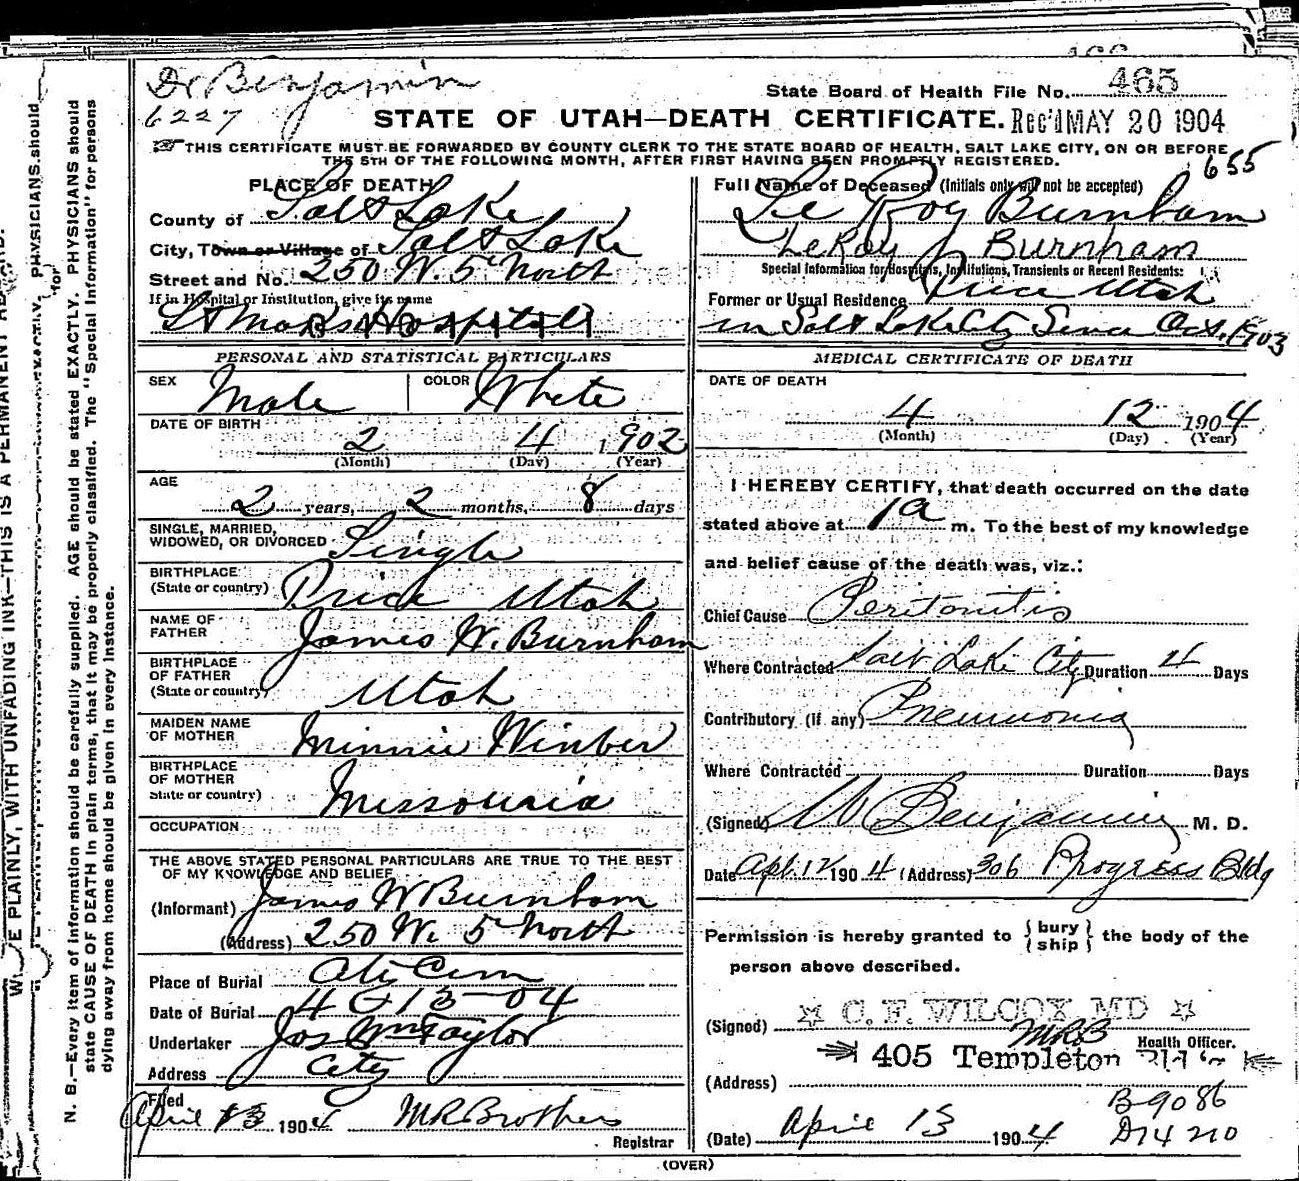 Dr Benjamin
6227
State Board of Health File No. 465
STATE OF UTAH—DEATH CERTIFICATE. Rec'd MAY 20 1904
THIS CERTIFICATE MUST BE FORWARDED BY COUNTY CLERK TO THE STATE BOARD OF HEALTH, SALT LAKE CITY, ON OR BEFORE
THE 5TH OF THE FOLLOWING MONTH, AFTER FIRST HAVING BEEN PROMPTLY REGISTERED.
655
PLACE OF DEATH
County of Salt Lake
City, Town or Village of Salt Lake
Street and No. 250 W. 5 North
If in Hospital or Institution, give its name
St Marks Hospital
Full Name of Deceased (Initials only will not be accepted)
Le Roy Burnham
LeRoy Burnham
Special Information for Hospitals, Institutions, Transients or Recent Residents:
Former or Usual Residence Price Utah
in Salt Lake City Since Oct. 1903
PERSONAL AND STATISTICAL PARTICULARS
SEX Male COLOR White
DATE OF BIRTH
2 4 1902
(Month) (Day) (Year)
AGE
2 years, 2 months, 8 days
SINGLE, MARRIED,
WIDOWED, OR DIVORCED Single
BIRTHPLACE
(State or country) Price Utah
NAME OF
FATHER James W. Burnham
BIRTHPLACE
OF FATHER
(State or country) Utah
MAIDEN NAME
OF MOTHER Minnie Winber
BIRTHPLACE
OF MOTHER
State or country) Missouria
OCCUPATION
THE ABOVE STATED PERSONAL PARTICULARS ARE TRUE TO THE BEST
OF MY KNOWLEDGE AND BELIEF
(Informant) James W Burnham
(Address) 250 W. 5 North
Place of Burial City Cem
Date of Burial 4-13-04
Undertaker Jos Wm Taylor
Address City
Filed
April 13 1904 M R Brothers
Registrar
MEDICAL CERTIFICATE OF DEATH
DATE OF DEATH
4 12 1904
(Month) (Day) (Year)
I HEREBY CERTIFY, that death occurred on the date
stated above at 1 a m. To the best of my knowledge
and belief cause of the death was, viz.:
Chief Cause Peritonitis
Where Contracted Salt Lake City Duration 4 Days
Contributory (If any) Pneumonia
Where Contracted Duration Days
(Signed) Benjamin M. D.
Date Apl. 12 1904 (Address) 306 Progress Bldg
Permission is hereby granted to {bury
ship} the body of the
person above described.
(Signed) C. F. WILCOX, MD
MRB Health Officer.
405 Templeton
(Address)
B9086
D14210
(Date) April 13 1904
(OVER)
N. B.—Every item of information should be carefully supplied. AGE should be stated EXACTLY. PHYSICIANS should
state CAUSE OF DEATH in plain terms, that it may be properly classified. The "Special Information" for persons
dying away from home should be given in every instance.
PLAINLY, WITH UNFADING INK—THIS IS A PERMANENT